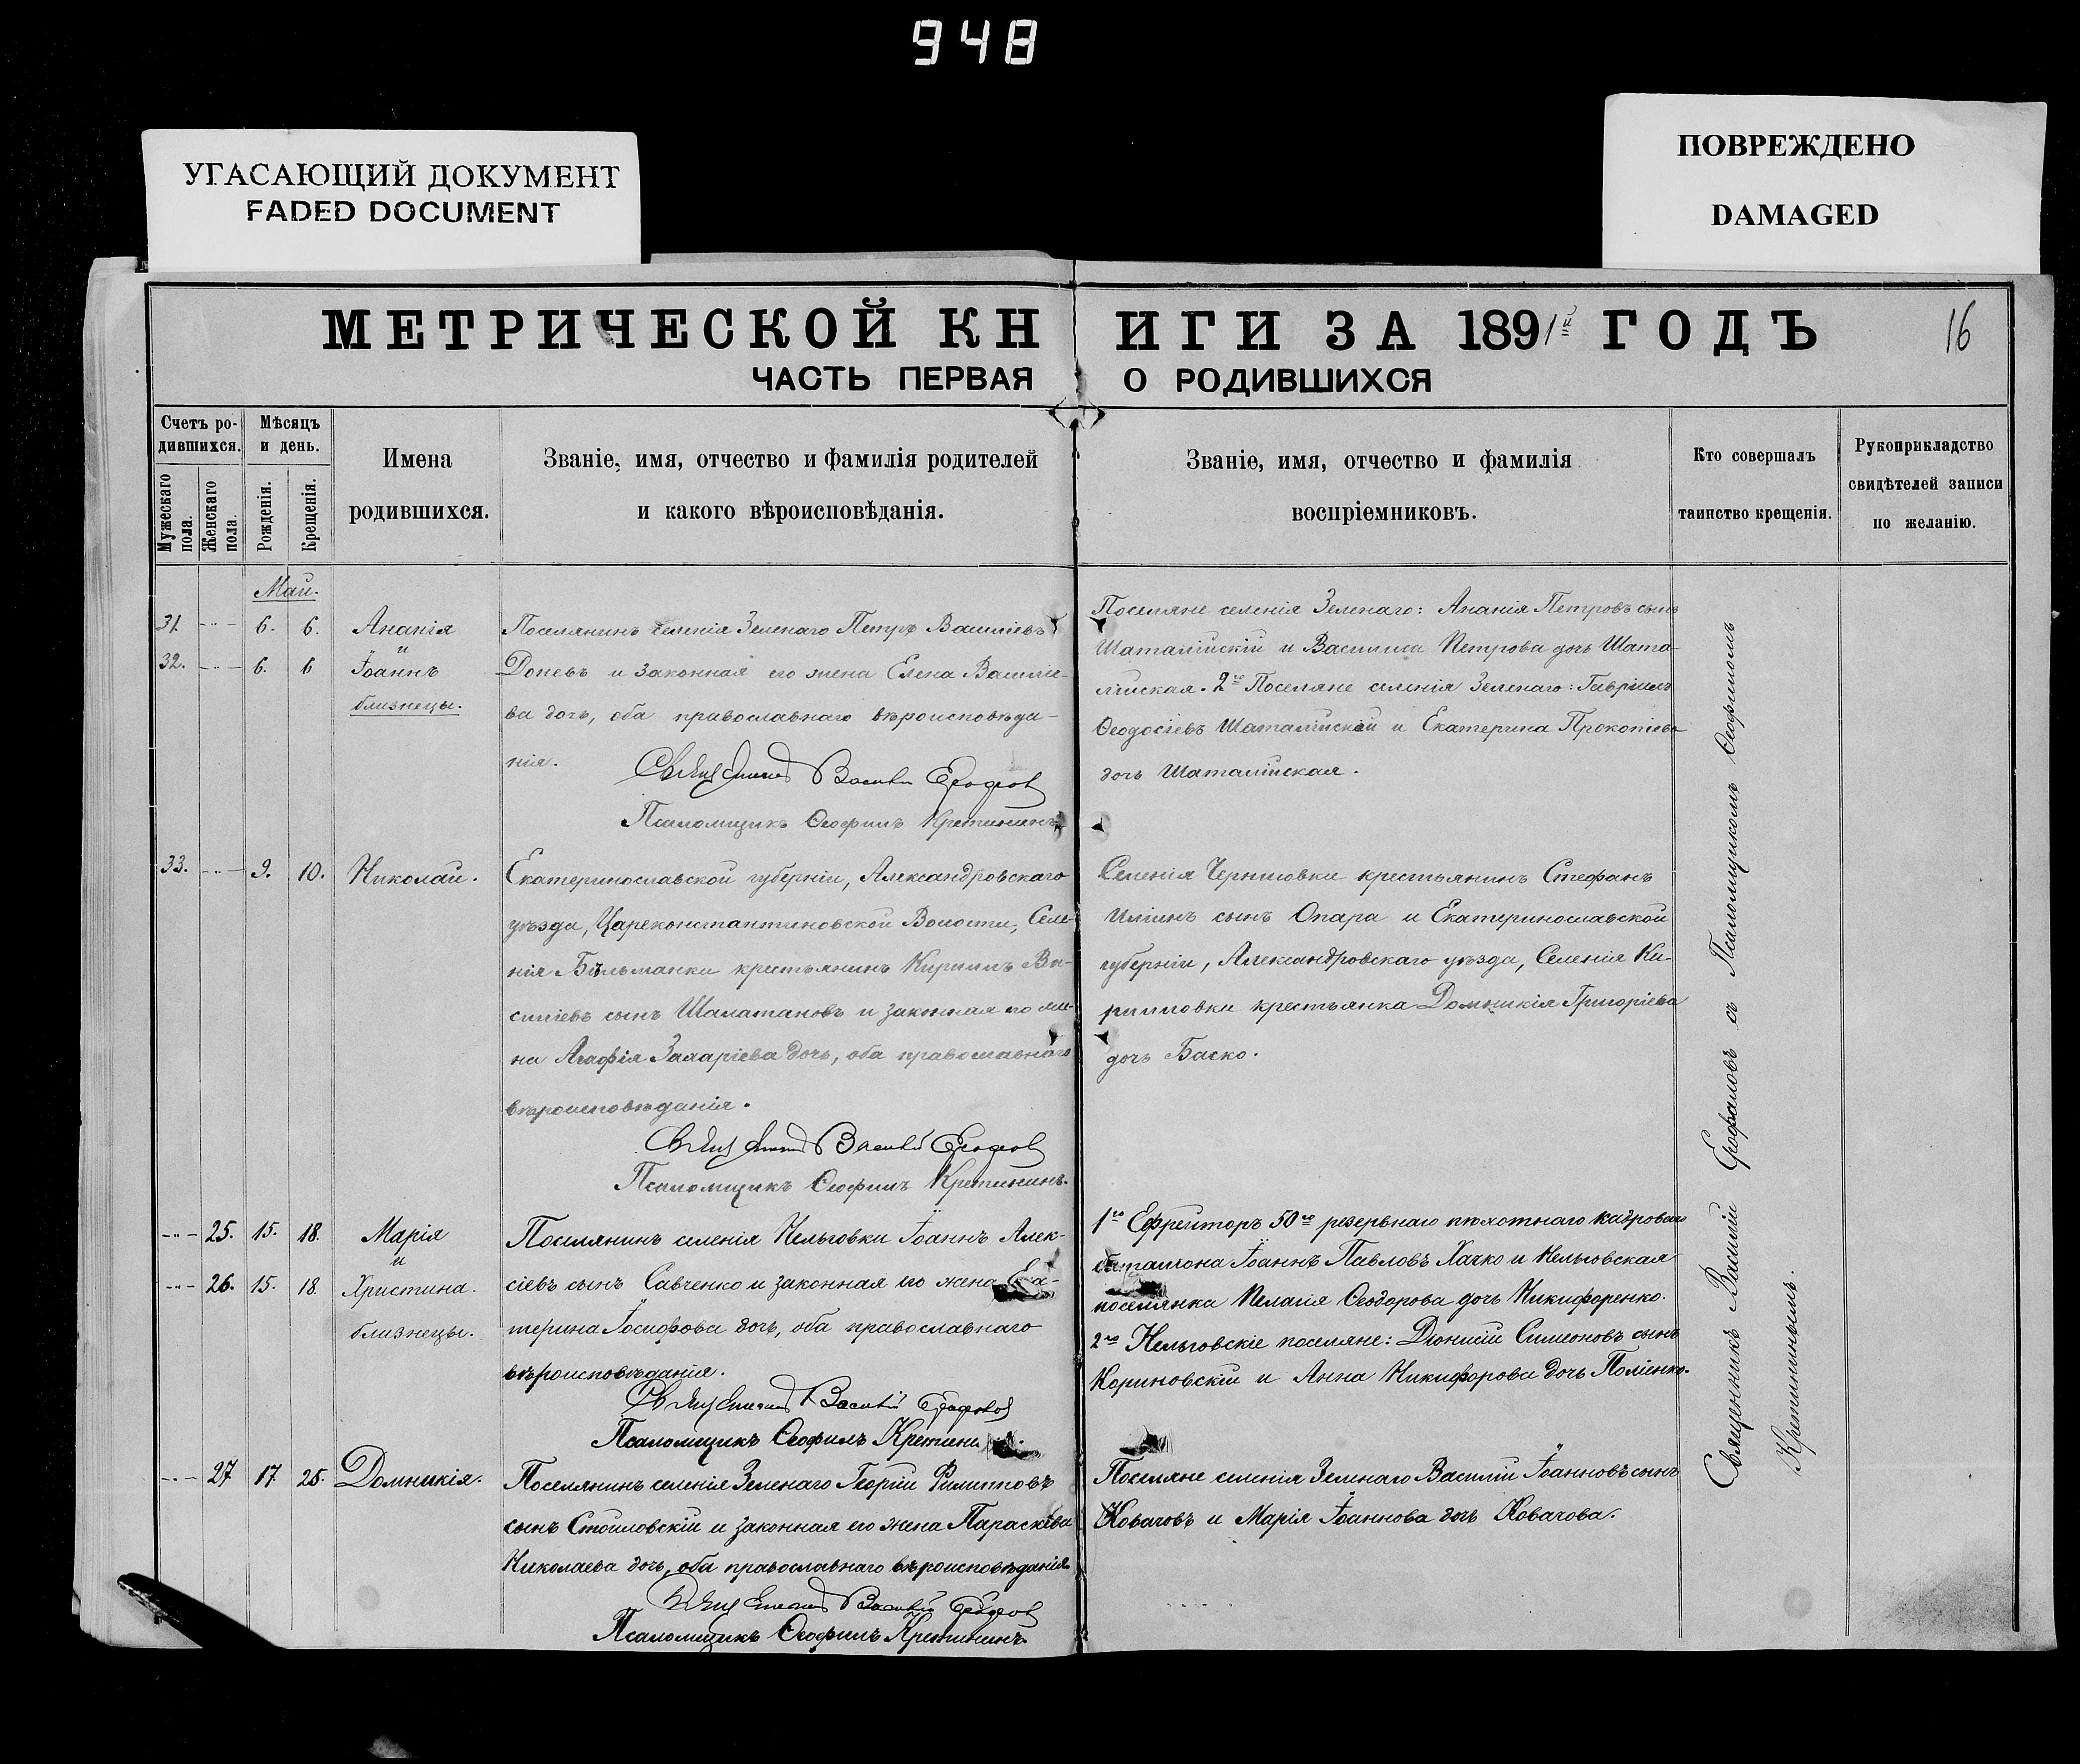 948
УГАСАЮЩИЙ ДОКУМЕНТ
FADED DOCUMENT
ПОВРЕЖДЕНО
DAMAGED
МЕТРИЧЕСКОЙ КНИГИ ЗА 1891й ГОДЪ
16
ЧАСТЬ ПЕРВАЯ О РОДИВШИХСЯ
Счетъ ро-
дившихся.
Мужескаго пола.
Женскаго пола.
Мѣсяцъ
и день.
Рожденія.
Крещенія.
Имена
родившихся.
Званіе, имя, отчество и фамилія родителей
и какого вѣроисповѣданія.
Званіе, имя, отчество и фамилія
воспріемниковъ.
Кто совершалъ
таинство крещенія.
Рукоприкладство
свидѣтелей записи
по желанію.
Май.
31. 6. 6. Ананія
и
32. 6. 6 Іоаннъ
близнецы.
Поселянинъ селенія Зеленаго Петръ Василіевъ
Доневъ и законная его жена Елена Василіе-
ва дочь, оба православнаго вѣроисповѣда-
нія.
Священникъ Василій Ерофаловъ
Псаломщикъ Ѳеофилъ Кретининъ
Поселяне селенія Зеленаго: Ананія Петровъ сынъ
Шаталійскій и Василиса Петрова дочь Шата-
лійская. 2го Поселяне селенія Зеленаго: Гавріилъ
Ѳеодосіевъ Шаталійскій и Екатерина Прокопіева
дочь Шаталійская.
33. 9. 10. Николай.
Екатеринославской губерніи, Александровскаго
уѣзда, Цареконстантиновской Волости, Селе-
нія Бѣльманки крестьянинъ Кириллъ Ва-
силіевъ сынъ Шалатановъ и законная его же-
на Агафія Захаріева дочь, оба православнаго
вѣроисповѣданія.
Священникъ Василій Ерофаловъ
Псаломщикъ Ѳеофилъ Кретининъ.
Селенія Черниговки крестьянинъ Стефанъ
Иліинъ сынъ Опара и Екатеринославской
губерніи, Александровскаго уѣзда, Селенія Ки-
рилловки крестьянка Домникія Григоріева
дочь Баско.
25. 15. 18. Марія
и
26. 15. 18. Христина.
близнецы.
Поселянинъ селенія Нельговки Іоаннъ Алек-
сіевъ сынъ Савченко и законная его жена Ека-
терина Іосифова дочь, оба православнаго
вѣроисповѣданія.
Священникъ Василій Ерофаловъ
Псаломщикъ Ѳеофилъ Кретини
1го Ефрейторъ 50го резервнаго пѣхотнаго кадроваго
баталіона Іоаннъ Павловъ Хачко и Нельговская
поселянка Пелагія Ѳеодорова дочь Никифоренко.
2го Нельговскіе поселяне: Діонисій Симеоновъ сынъ
Кориновскій и Анна Никифорова дочь Поліенко.
27 17 25. Домникія.
Поселянинъ селенія Зеленаго Георгій Филипповъ
сынъ Стоиловскій и законная его жена Параскева
Николаева дочь, оба православнаго вѣроисповѣданія
Священникъ Василій Ерофаловъ
Псаломщикъ Ѳеофилъ Кретининъ.
Поселяне селенія Зеленаго Василій Іоанновъ сынъ
Ковачовъ и Марія Іоаннова дочь Ковачова.
Священникъ Василій Ерофаловъ съ Псаломщикомъ Ѳеофиломъ
Кретининымъ.